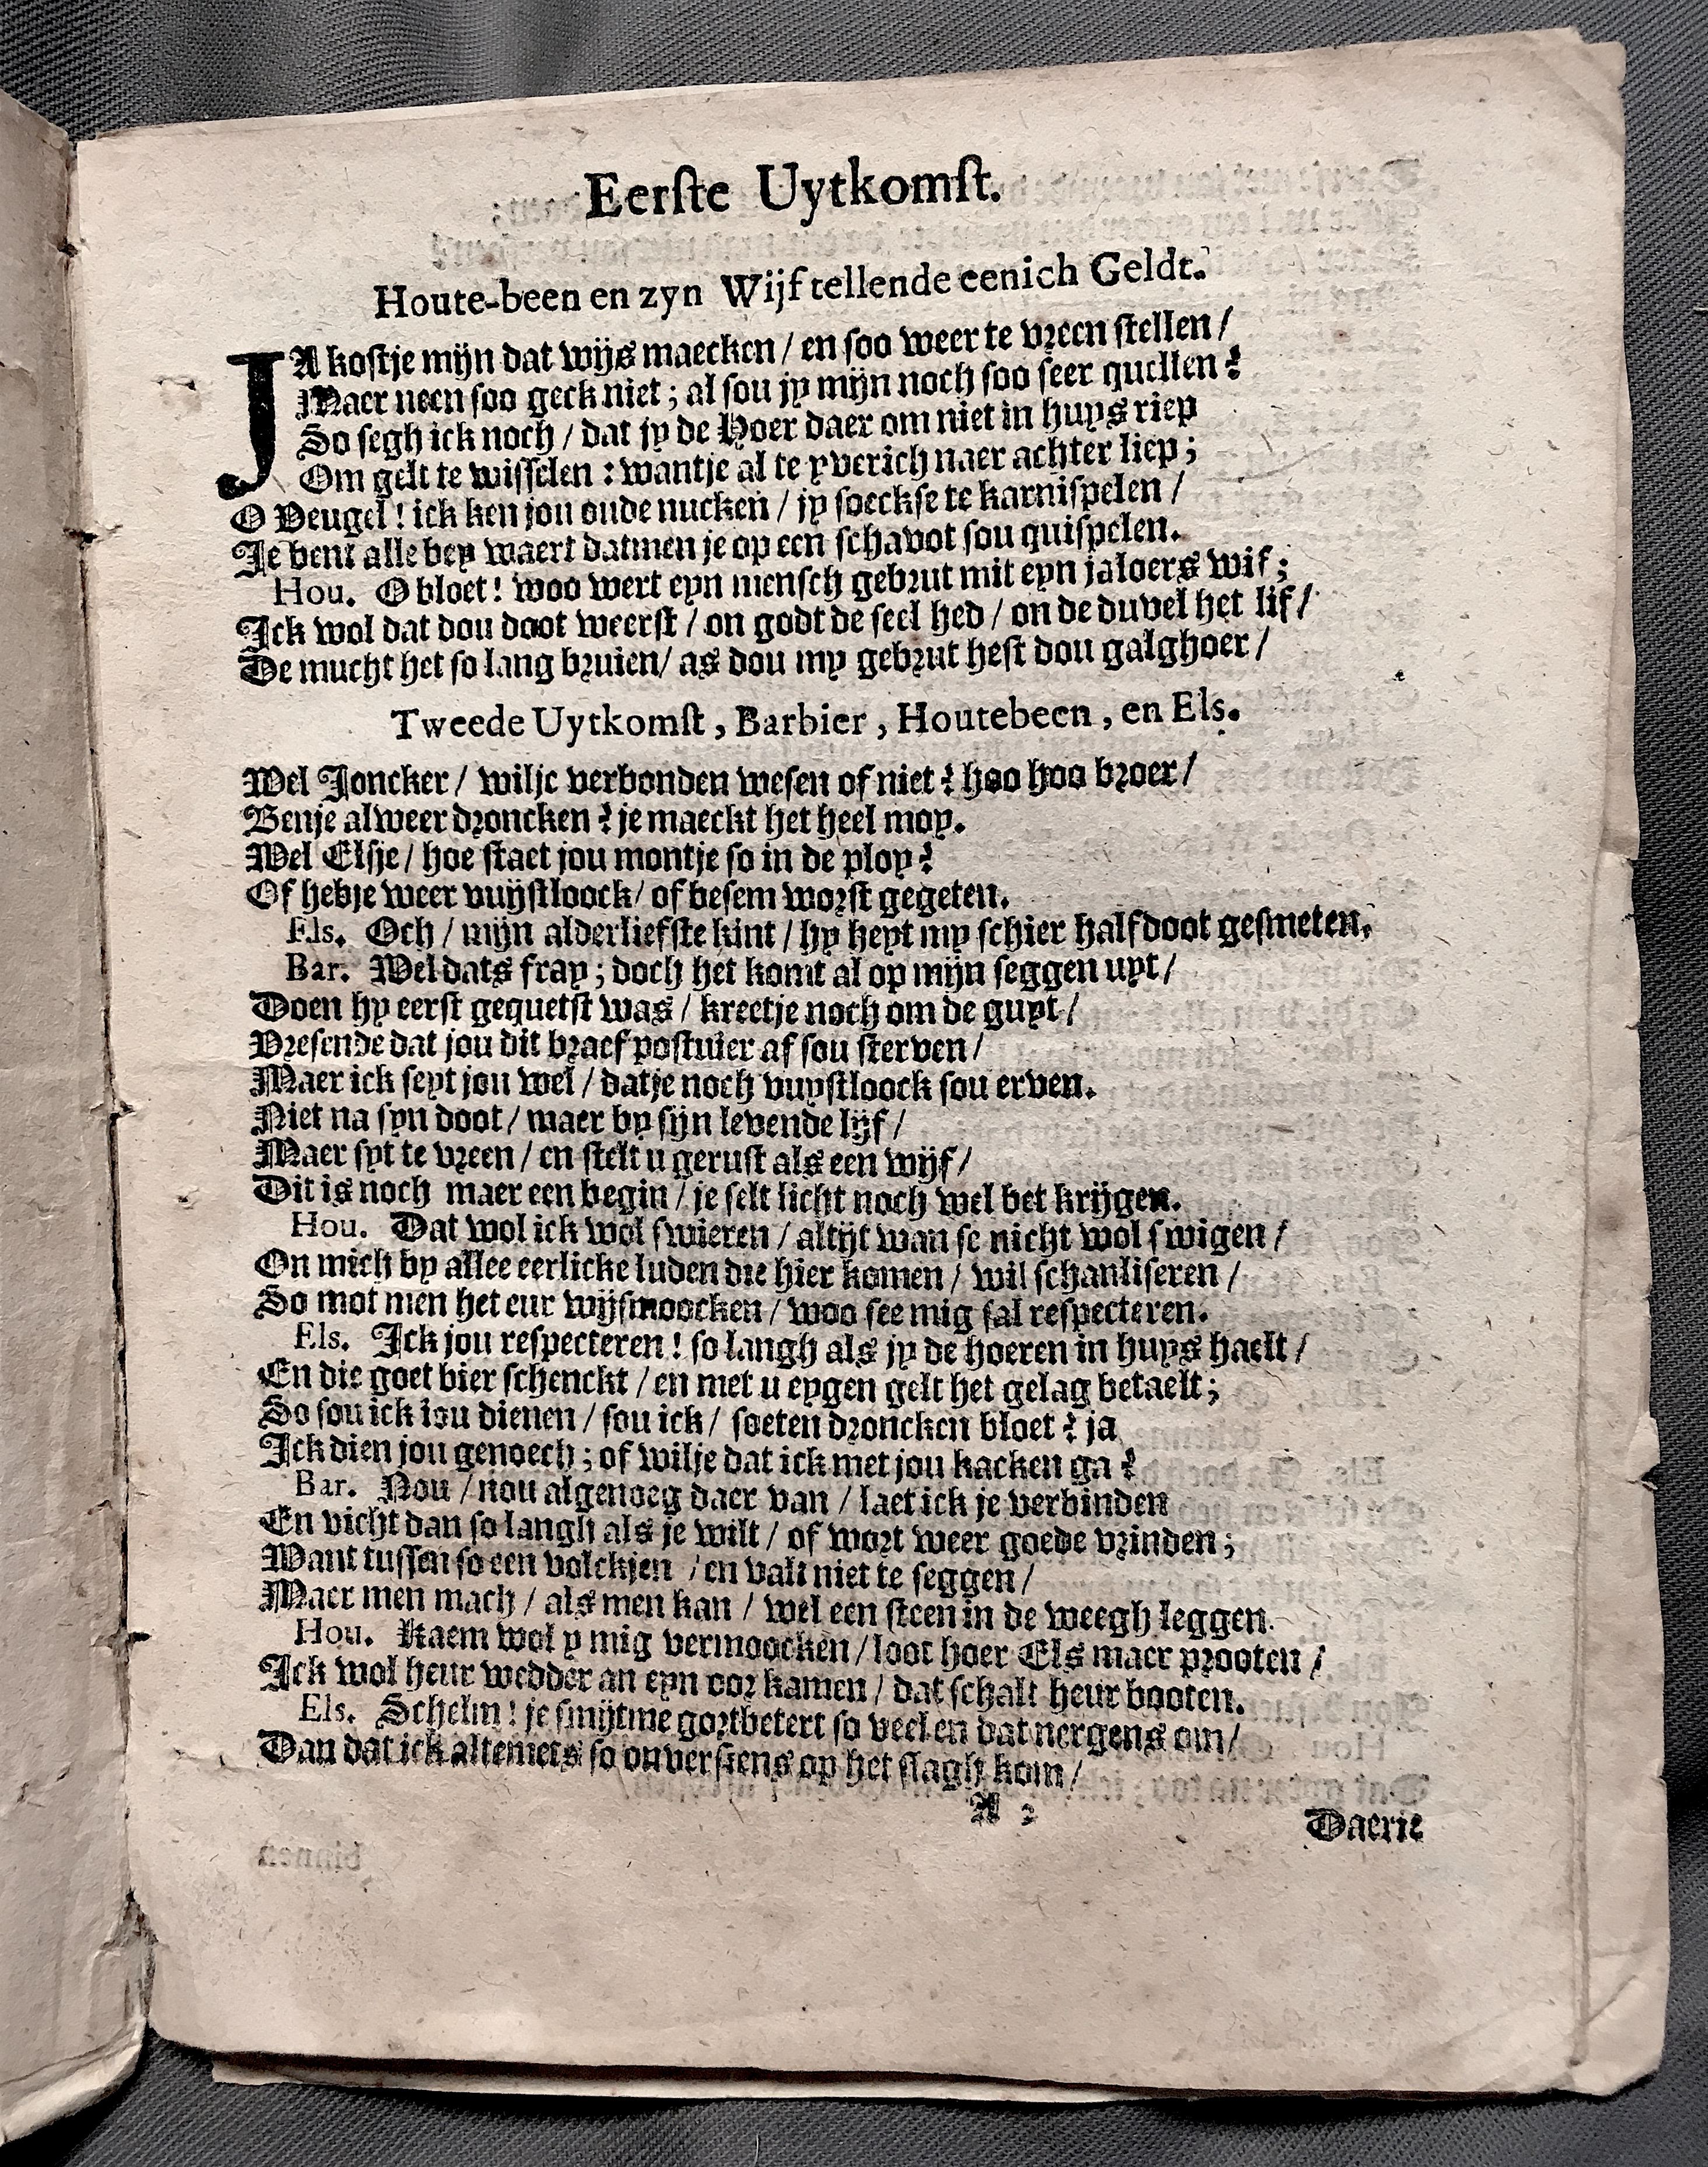 Eerſte Uytkomſt.
Houte-been en zyn Wijf tellende eenich Geldt.
JA koſtje mijn dat wijs maecken / en ſoo weer te vreen ſtellen /
Maer neen ſoo geck niet ; al ſou jy mijn noch ſoo ſeer quellen ?
So ſegh ick noch / dat jy de Hoer daer om niet in huys riep
Om gelt te wiſſelen : wantje al te yverich naer achter liep ;
O Veugel ! ick ken jou oude nucken / jy ſoeckſe te karniſpelen /
Je bent alle bey waert datmen je op een ſchavot ſou quiſpelen.
Hou. O bloet ! woo wert eyn menſch gebrut mit eyn jaloers wif ;
Ick wol dat dou doot weerſt / on godt de ſeel hed / on de duvel het lif /
De mucht het ſo lang bruien / as dou my gebrut heſt dou galghoer /
Tweede Uytkomſt , Barbier , Houtebeen , en Els.
Wel Joncker / wilje verbonden weſen of niet ? hoo hoo broer /
Benje alweer droncken ? je maeckt het heel moy.
Wel Elſje / hoe ſtaet jou montje ſo in de ploy ?
Of hebje weer vuijſtloock / of beſem worſt gegeten.
Els. Och / mijn alderliefſte kint / hy heyt my ſchier half doot geſmeten,
Bar. Wel dats fray ; doch het komt al op mijn ſeggen uyt /
Doen hy eerſt gequetſt was / kreetje noch om de guyt /
Vreſende dat jou dit braef poſtuier af ſou ſterven /
Maer ick ſeyt jou wel / datje noch vuyſtloock ſou erven.
Niet na ſyn doot / maer by ſijn levende lijf /
Maer ſyt te vreen / en ſtelt u geruſt als een wijf /
Dit is noch maer een begin / je ſelt licht noch wel bet krijgen.
Hou. Dat wol ick wol ſwieren / altijt wan ſe nicht wol ſwigen /
On mich by allee eerlicke luden die hier komen / wil ſchanliſeren /
So mot men het eur wijſmoocken / woo ſee mig ſal reſpecteren.
Els. Ick jou reſpecteren ! ſo langh als jy de hoeren in huys haelt /
En die goet bier ſchenckt / en met u eygen gelt het gelag betaelt ;
So ſou ick jou dienen / ſou ick / ſoeten droncken bloet ? ja
Ick dien jou genoech ; of wilje dat ick met jou kacken ga ?
Bar. Nou / nou al genoeg daer van / laet ick je verbinden
En vicht dan ſo langh als je wilt / of wort weer goede vrinden ;
Want tuſſen ſo een volckjen / en valt niet te ſeggen /
Maer men mach / als men kan / wel een ſteen in de weegh leggen.
Hou. Kaem wol y mig vermoocken / loot hoer Els maer prooten /
Ick wol heur wedder an eyn oor kamen / dat ſchalt heur booten.
Els. Schelm ! je ſmijtme gortbetert ſo veel en dat nergens om /
Dan dat ick altemets ſo onverſiens op het ſlagh kom /
A 2
Daerje